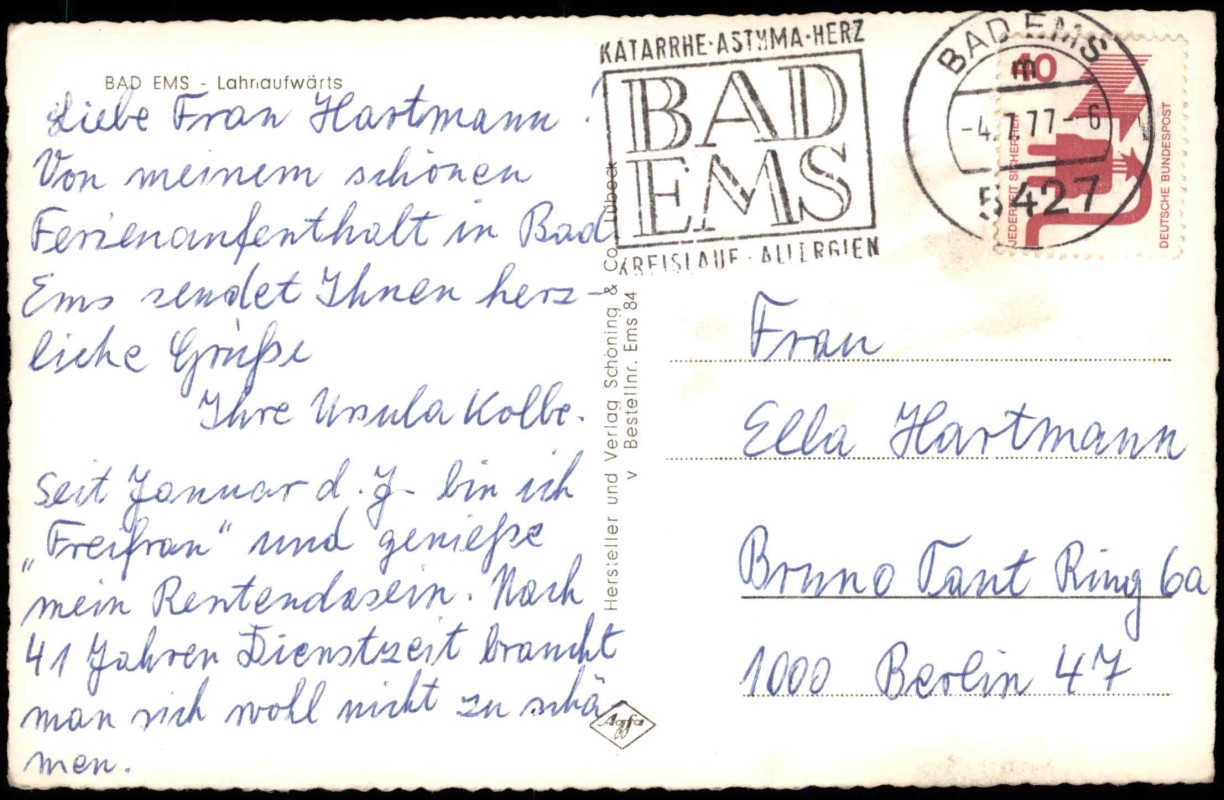 BAD EMS - Lahnaufwärts
Liebe Frau Hartmann!
Von meinem schönen
Ferienaufenthalt in Bad
Ems sendet Ihnen herz-
liche Grüße
Ihre Ursula Kolbe.
Seit Januar d. J. bin ich
„Freifrau“ und genieße
mein Rentendasein. Nach
41 Jahren Dienstzeit braucht
man sich wohl nicht zu schä
men.
Hersteller und Verlag Schöning & Co., Lübeck
v Bestellnr. Ems 84
Agfa
KATARRHE·ASTHMA·HERZ
BAD
EMS
KREISLAUF·ALLERGIEN
BAD EMS
m
-4.7.77-6
5427
40
JEDERZEIT SICHERHEIT
DEUTSCHE BUNDESPOST
Frau
Ella Hartmann
Bruno Taut Ring 6a
1000 Berlin 47